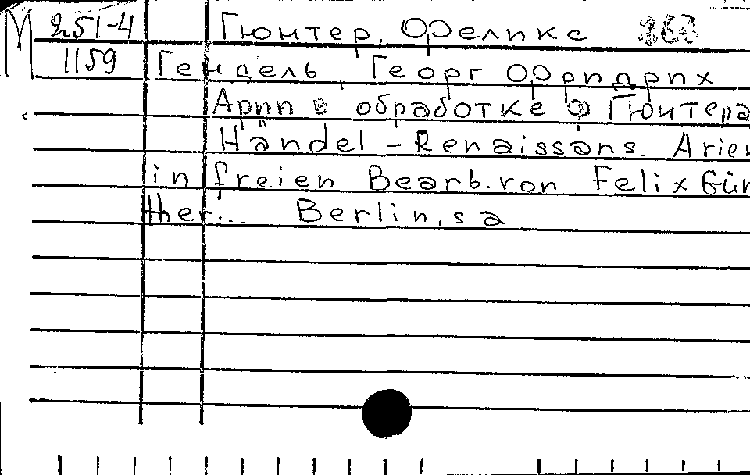 М 251-4 Гюнтер, Феликс
1159 Гендель, Георг Фридрих
Арии в обработке Ф Гюнтера
Händel - Renaissans. Arien
in freien Bearb. von Felix Gün
ther... Berlin, s a